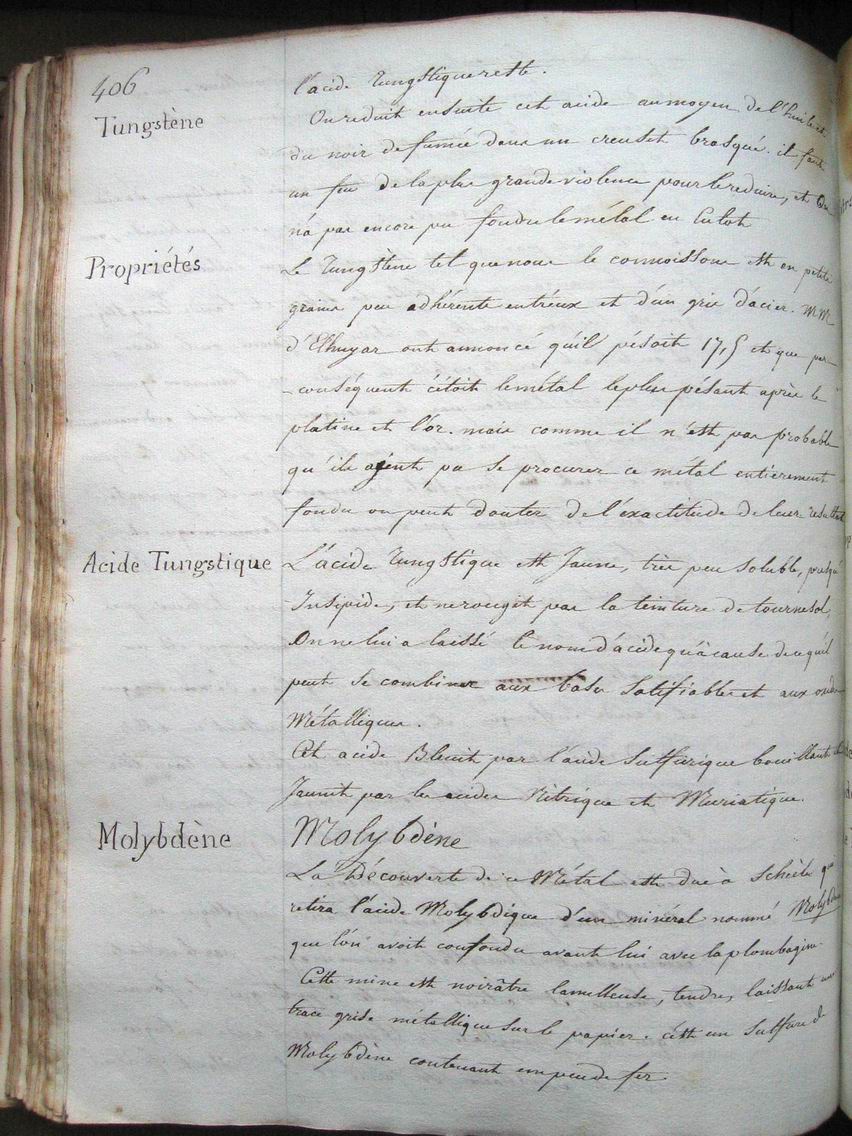 406
l'acide Tungstique reste.
Tungstène
On reduit ensuite cet acide au moyen de l'huile et
du noir de fumée dans un creuset brasqué. il faut
un feu de la plus grande violence pour le reduire, et on
n'a pas encore pu fondre le métal en Culot
Propriétés
Le Tungstène tel que nous le connoissons est en petits
grains peu adhérents entr'eux et d'un gris d'acier. MM
d'Elhuyar ont annoncé qu'il pésoit 17,5 et que par
-conséquent c'étoit le métal le plus pésant après le
platine et l'or. mais comme il n'est pas probable
qu'ils ayent pu se procurer ce métal entièrement
fondu on peut douter de l'éxactitude de leur resultat
Acide Tungstique
L'acide Tungstique est Jaune, très peu soluble, presqu'
Insipide, et ne rougit pas la teinture de tournesol,
On ne lui a laissé le nom d'acide qu'à cause de ce qu'il
peut se combiner aux bases salifiables et aux oxides
Métalliques.
Cet acide Bleuit par l'acide sulfurique bouillant
Jaunit par les acides Nitrique et Muriatique.
Molybdène
Molybdène
La Découverte de ce Métal est due à Schéele qui
retira l'acide Molybdique d'un minéral nommé Molybdène
que l'on avoit confondu avant lui avec la plombagine.
Cette mine est noirâtre lamelleuse, tendre, laissant une
trace grise métallique sur le papier. c'est un Sulfure de
Molybdène contenant un peu de fer.